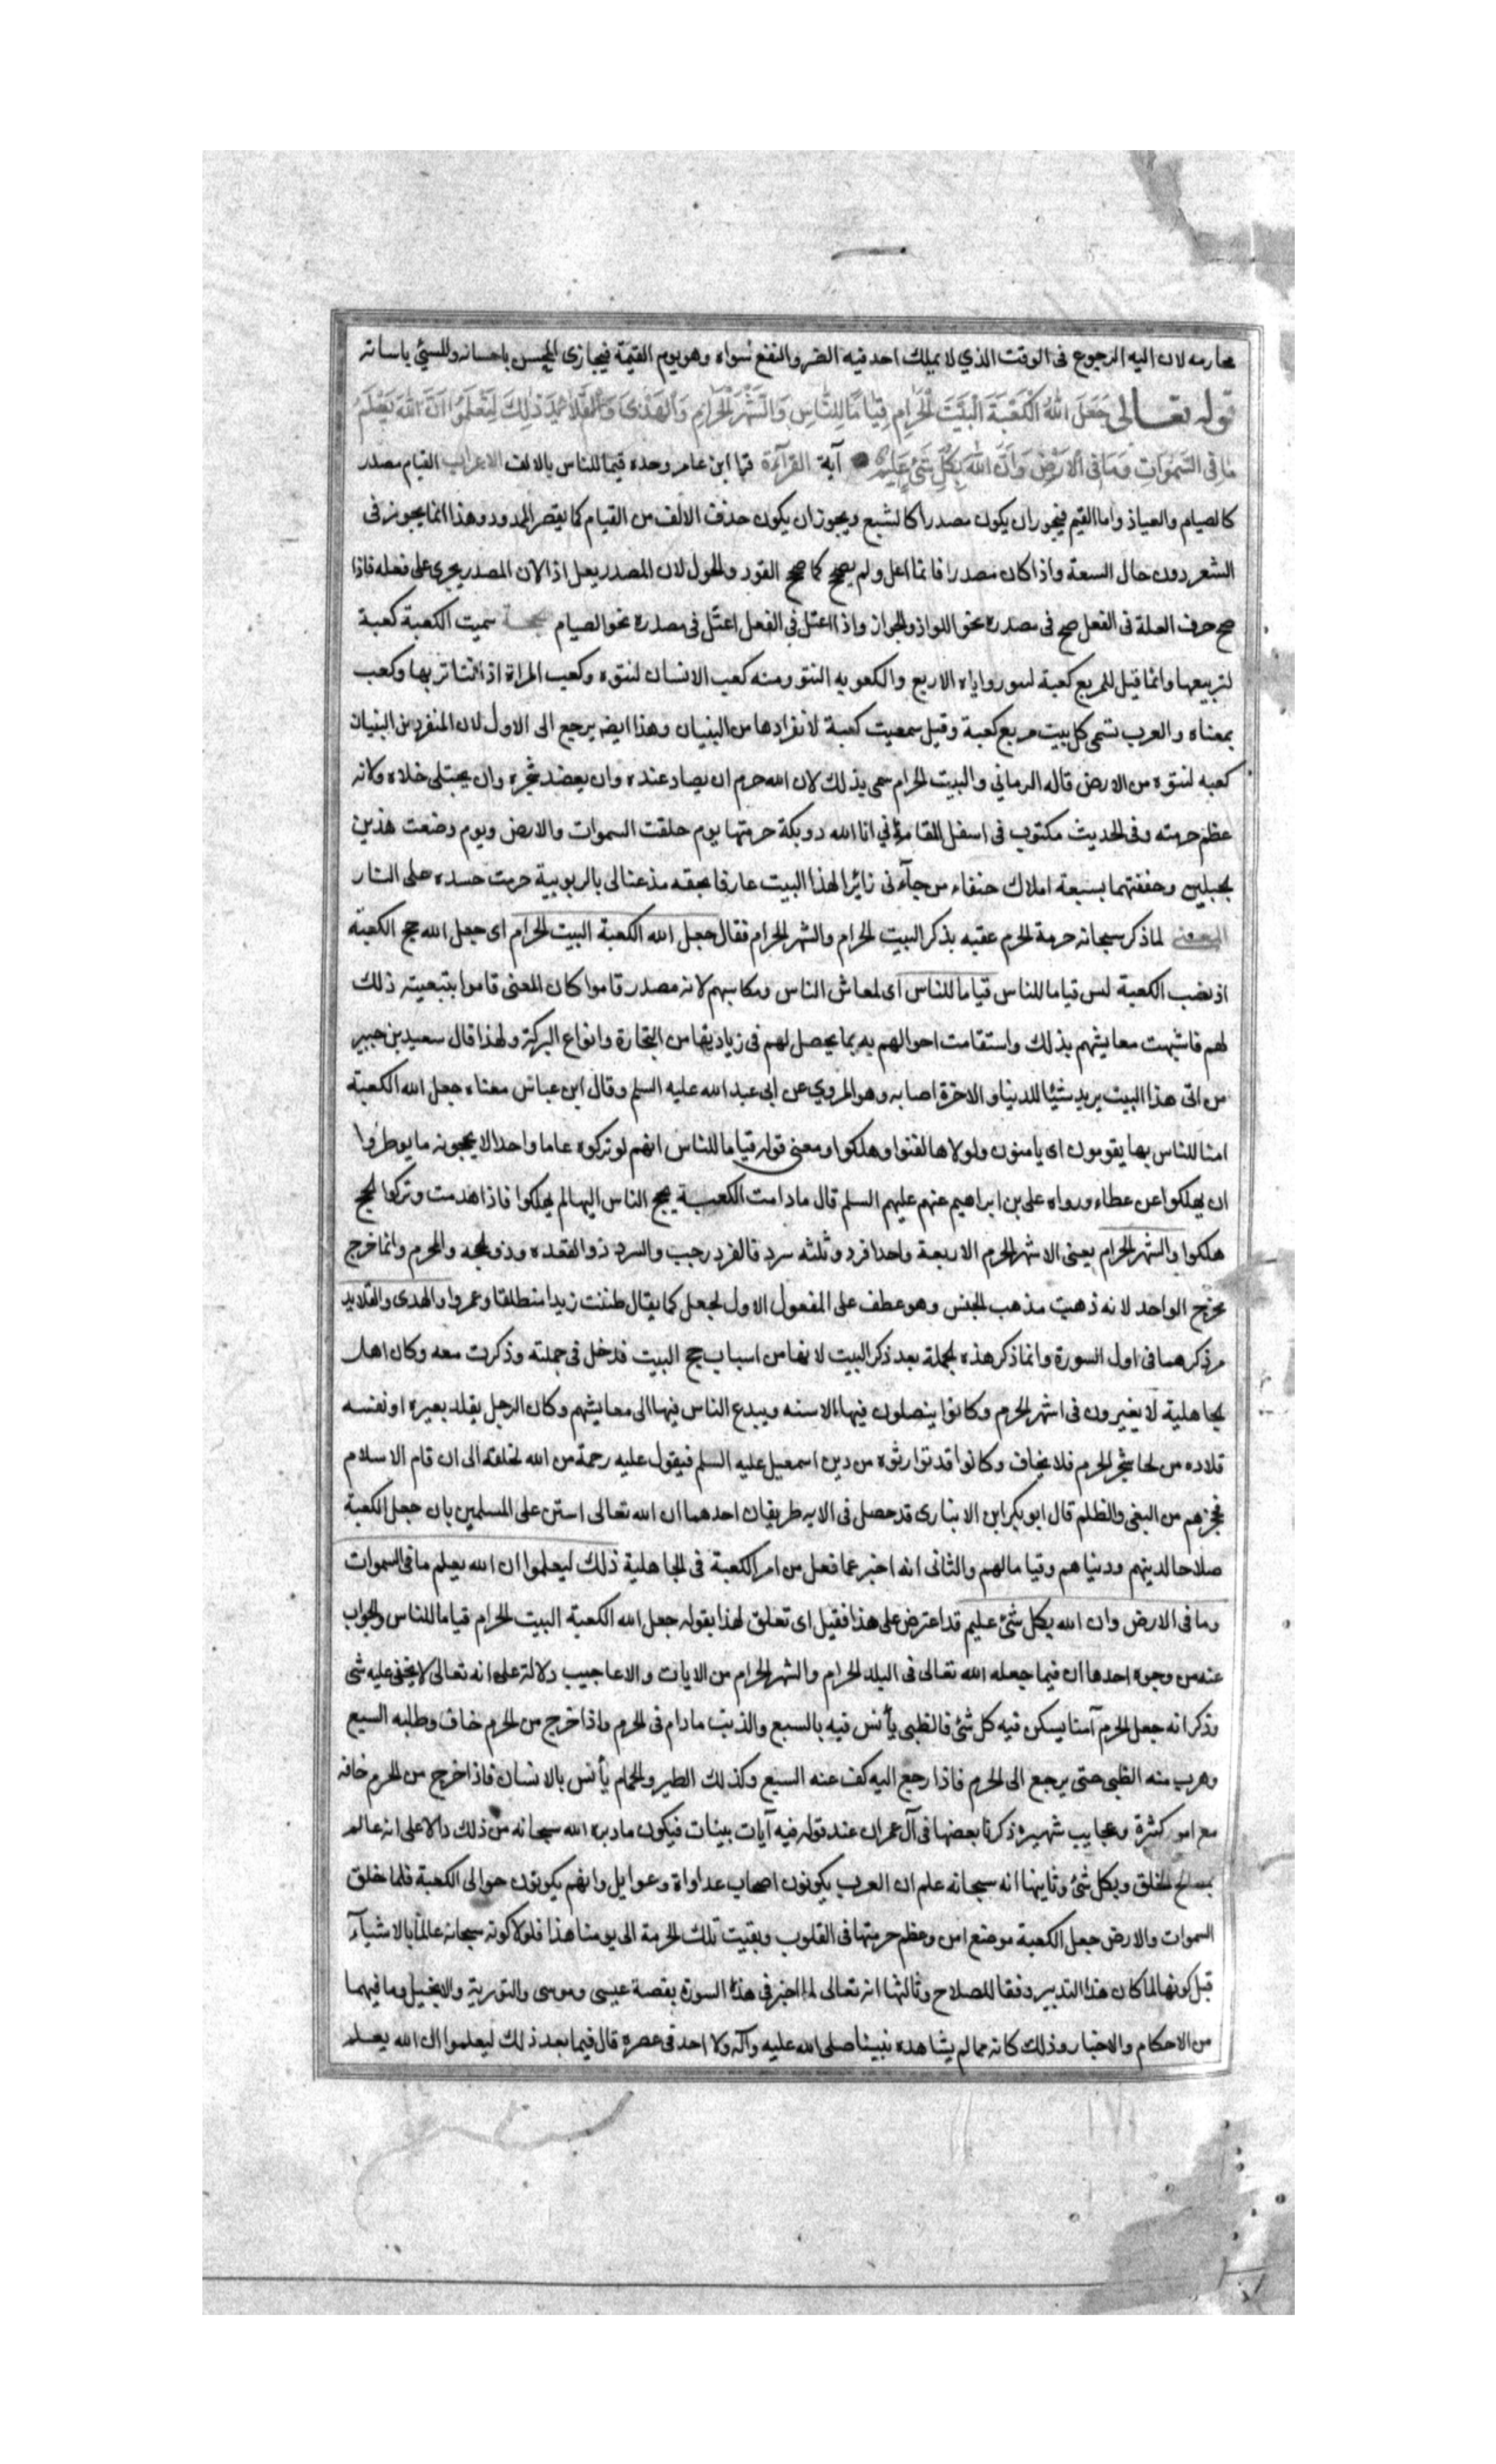 محارمه لان اليه الرجوع فى الوقت الذي لا يملك احد فيه الضر والنفع سواه وهو يوم القيمة فيجازى المحسن باحسانه والمسيئ باساته
قوله تعالى جَعَلَ اللهُ الكَعْبَةَ الْبَيْتَ الْحَرامِ قِيَامًا لِلنَّاسِ وَالشَّهْرَ الْحَرَامِ وَالْهَدْىَ وَالْقَلَائِدَ ذٰلِكَ لِتَعْلَمُوا اَنَّ اللهَ يَعْلَمُ
مَا فِى السَّمٰوَاتِ وَمَا فِى الاَرْضِ وَاَنَّ اللهَ بِكُلِّ شَىْءٍ عَلِيمٌ آية القرآءة قرا ابن عامر وحده قيما للناس بالالف الاعراب القيام مصدر
كالصيام والعياذ واما القيم فيجوز ان يكون مصدرا كالشبع ويجوز ان يكون حذف الالف من القيام كما يقصر الممدود وهذا انما يجوز فى
الشعر دون حال السعة واذا كان مصدرا فانما اعل ولم يصح كما صح القود والحول لان المصدر يعل اذ الان المصدر يجرى على فعله فاذا
صح حرف العلة فى الفعل صح فى مصدره نحو اللواذ والجوار واذا اعتل فى الفعل اعتل فى مصدره نحو الصيام سميت الكعبة كعبة
لتربيعها وانما قيل للمربع كعبة لنتو زواياه الاربع والكعوبه النتو ومنه كعب الانسان لنتوه وكعبت المراة اذا نتا ثديها وكعب
بمعناه والعرب تسمى كل بيت مربع كعبة وقيل سميت كعبة لانفرادها من البنيان وهذا ايضه يرجع الى الاول لان المنفرد من البنيان
كعبه لنتوه من الارض قاله الرماني والبيت الحرام سمى بذلك لان الله حرم ان يصاد عنده وان يعضد شجره وان يختلى خلاه ولانه
عظم حرمته وفى الحديث مكتوب فى اسفل المقام اني انا الله ذو بكة حرمتها يوم خلقت السموات والارض ويوم وضعت هذين
الجبلين وحففتهما بسبعة املاك حنفاء من جآءنى زائرا لهذا البيت عارفا بحقه مذعنا لى بالربوبية حرمت جسده على النار
المعنى لما ذكر سبحانه حرمة الحرم عقبه بذكر البيت الحرام والشهر الحرام فقال جعل الله الكعبة البيت الحرام اى جعل الله حج الكعبة
اذ نصب الكعبة ليس قياما للناس قياما للناس اى لمعاش الناس ومكاسبهم لانه مصدر قاموا كان المعنى قاموا بتبعيته ذلك
لهم فاشبهت معايشهم بذلك واستقامت احوالهم به بما يحصل لهم فى زيادتها من التجارة وانواع البركة ولهذا قال سعيد بن جبير
من اتى هذا البيت يريد شيئا للدنيا والاخرة اصابه وهو المروي عن ابى عبد الله عليه السلم وقال ابن عباس معناه جعل الله الكعبة
امنا للناس بها يقومون اى يامنون ولولاها لفنوا وهلكوا ومعنى قوله قياما للناس انهم لو تركوه عاما واحدا لا يحجونه ما نوظروا
ان يهلكوا عن عطاء ورواه على بن ابراهيم عنهم عليهم السلم قال مادامت الكعبة يحج الناس اليها لم يهلكوا فاذا هدمت وتركوا الحج
هلكوا والشهر الحرام يعنى الاشهر الحرم الاربعة واحد فرد وثلثه سرد فالفرد رجب والسرد ذو القعده وذو الحجه والمحرم وانما خرج
مخرج الواحد لانه ذهب مذهب الجنس وهو عطف على المفعول الاول لجعل كما يقال ظننت زيدا منطلقا وعمروا والهدى والقلايد
مر ذكرهما فى اول السورة وانما ذكر هذه الجملة بعد ذكر البيت لانها من اسباب حج البيت فدخل فى جملته وذكرت معه وكان اهل
الجاهلية لا يغيرون فى اشهر الحرم وكانوا ينصلون فيها الاسنه ويبدع الناس فيها الى معايشهم وكان الرجل يقلد بعيره او نفسه
قلاده من لحا شجر الحرم فلا يخاف وكانوا قد توارثوه من دين اسمعيل عليه السلم فيقول عليه رحمة من الله لخلقه الى ان قام الاسلام
فحجزهم من البغى والظلم قال ابو بكر ابن الانبارى قد حصل فى الايه طريقان احدهما ان الله تعالى استن على المسلمين بان جعل الكعبة
صلاحا لدينهم ودنياهم وقياما لهم والثانى انه اخبر عما فعل من امر الكعبة فى الجاهلية ذلك ليعلموا ان الله يعلم ما فى السموات
وما فى الارض وان الله بكل شئ عليم قد اعترض على هذا فقيل اى تعلق لهذا بقوله جعل الله الكعبة البيت الحرام قياما للناس والجواب
عنه من وجوه احدها ان فيما جعله الله تعالى فى البلد الحرام والشهر الحرام من الايات والاعاجيب دلالة على انه تعالى لا يخفى عليه شئ
وذكر انه جعل الحرم آمنا يسكن فيه كل شئ فالظبى يأنس فيه بالسبع والذيب مادام فى الحرم واذا خرج من الحرم خاف وطلبه السبع
وهرب منه الظبى حتى يرجع الى الحرم فاذا رجع اليه كف عنه السبع وكذلك الطير والحمام يأنس بالانسان فاذا خرج من الحرم خافه
مع امور كثرة وعجايب شهيره ذكرنا بعضها فى آل عمران عند قوله فيه آيات بينات فيكون ما دبره الله سبحانه من ذلك دالا على انه عالم
بمصالح الخلق وبكل شئ وثانيها انه سبحانه علم ان العرب يكونون اصحاب عداواة وعوايل وانهم يكونون حوالى الكعبة فلما خلق
السموات والارض جعل الكعبة موضع امن وعظم حرمتها فى القلوب وبقيت تلك الحرمة الى يومنا هذا فلولا كونه سبحانه عالما بالاشيآء
قبل كونها لما كان هذا التدبير وفقا للصلاح وثالثها انه تعالى لما اخبر فى هذه السورة بقصة عيسى وموسى والتورية والانجيل وما فيهما
من الاحكام والاخبار وذلك كانه مما لم يشاهده نبينا صلى الله عليه وآله ولا احد فى عصره قال فيما بعد ذلك ليعلموا ان الله يعلم